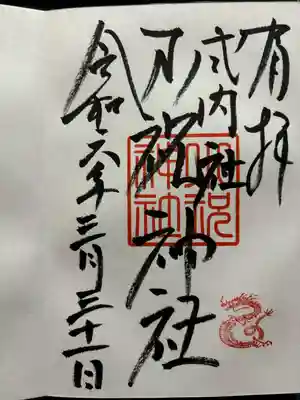 奉拝
式内社
祝神社
令和六年三月三十一日